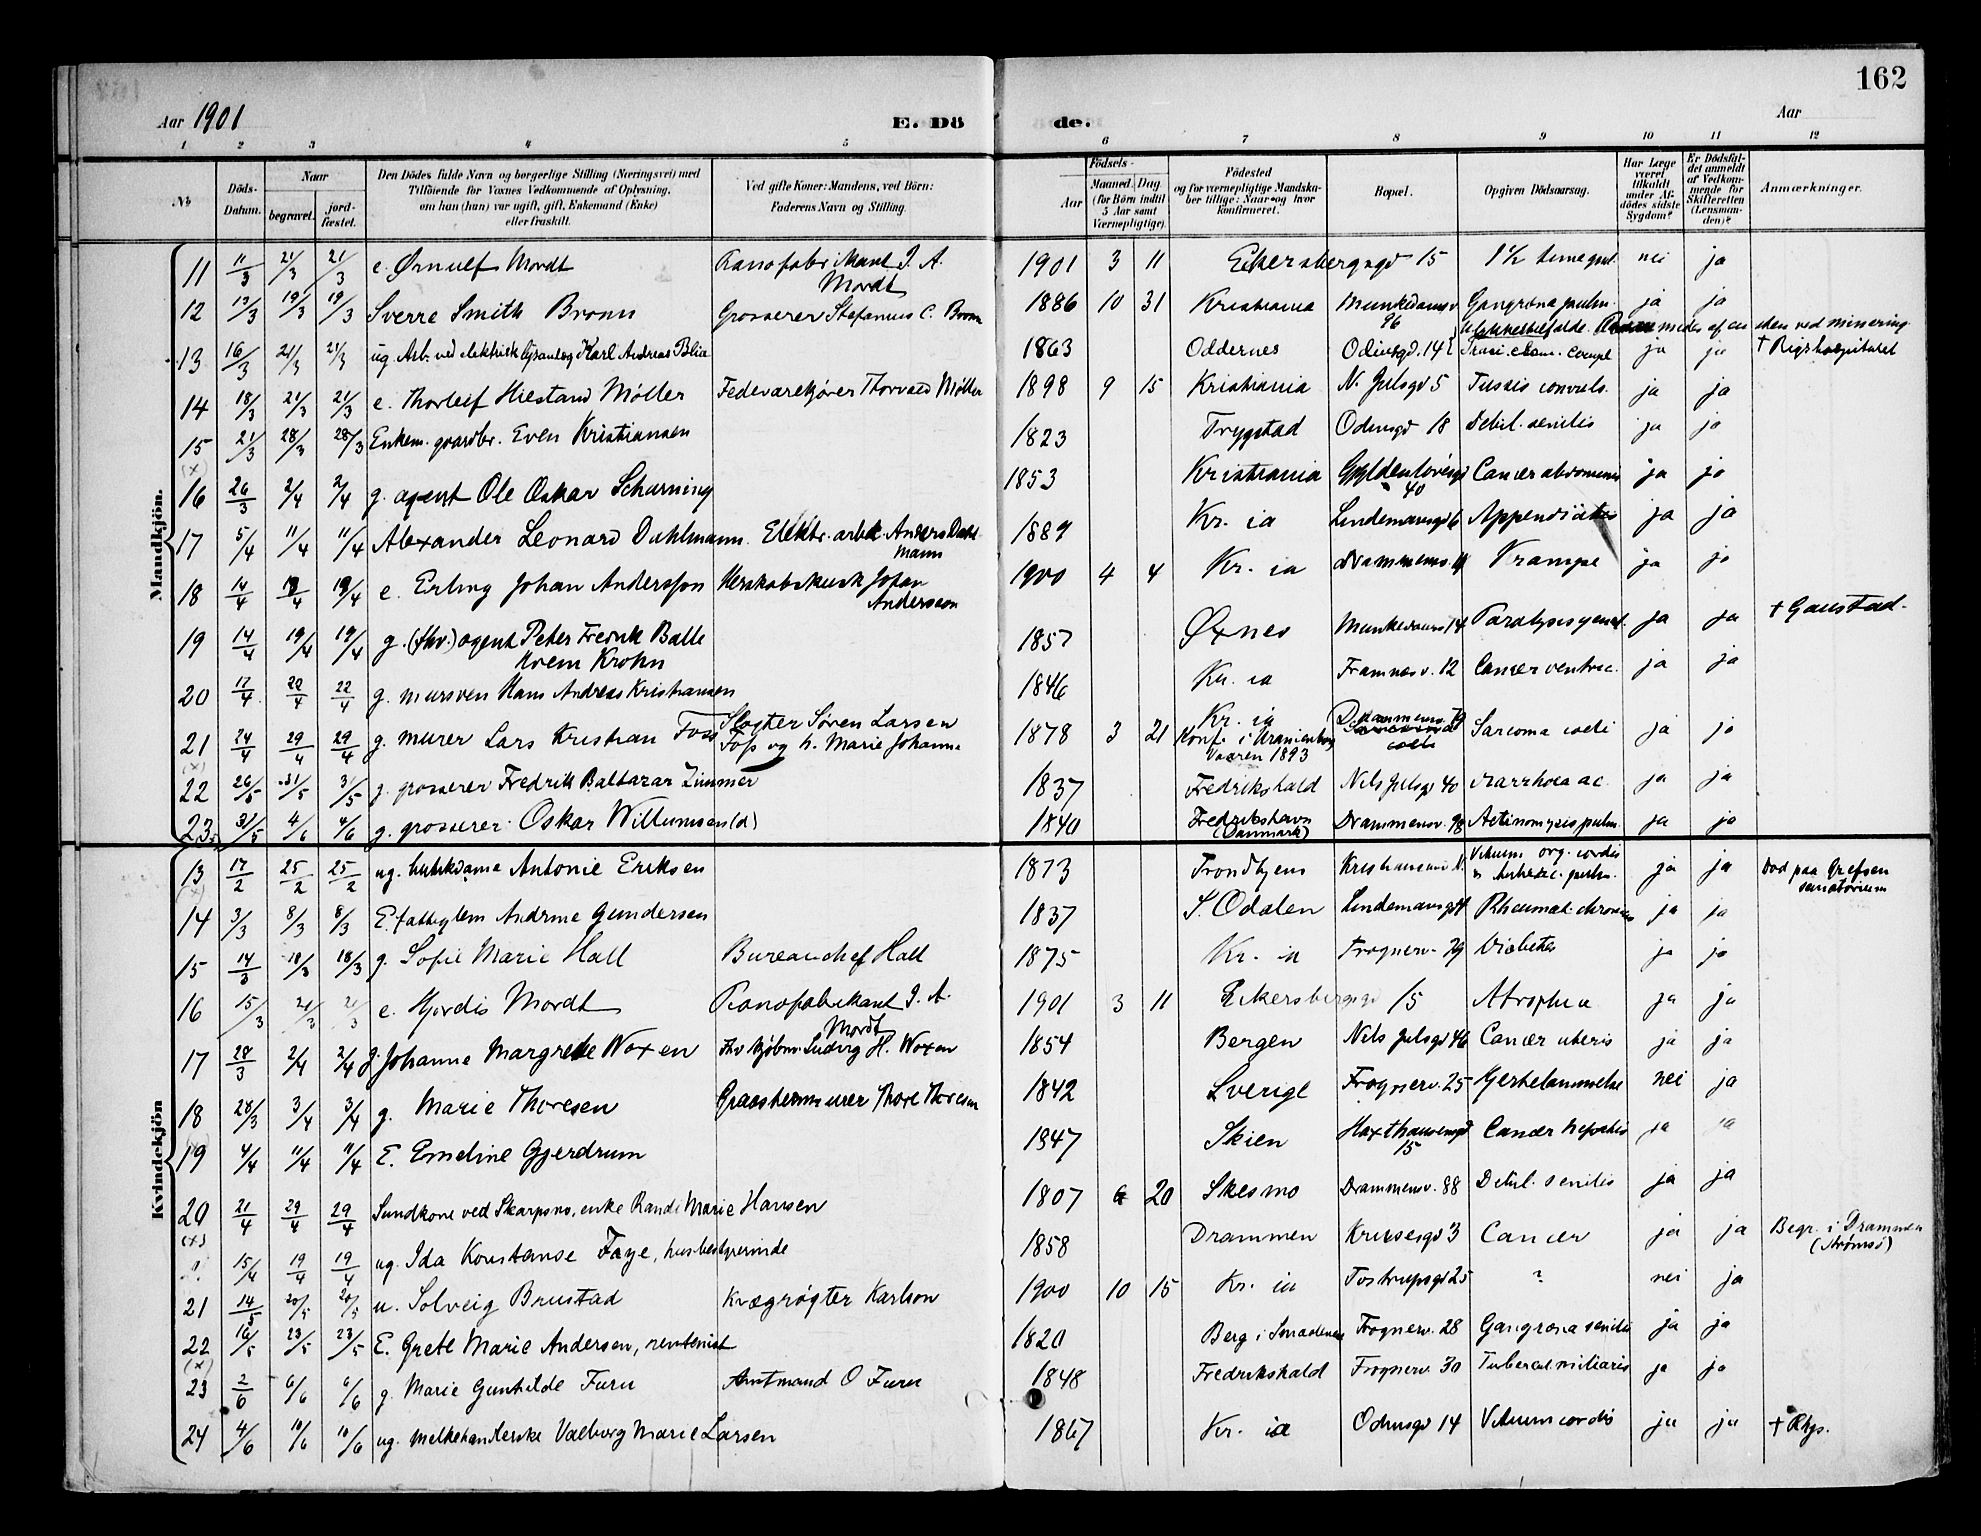 162
Aar 1901
E. Dö
de.
Aar
1 2 3 4 5 6 7 8 9 10 11 12
No
Döds-Datum.
Naar
begravet.
jord-fæstet.
Den Dödes fulde Navn og borgerlige Stilling (Næringsvei) med
Tilföiende for Voxnes Vedkommende af Oplysning,
om han (hun) var ugift, gift, Enkemand (Enke)
eller fraskilt.
Ved gifte Koner: Mandens, ved Börn:
Faderens Navn og Stilling.
Födsels-
Aar
Maaned. Dag
(for Börn indtil
5 Aar samt
Værnepligtige).
Födested
og for værnepligtige Mandska-
ber tillige: Naar og hvor
konfirmeret.
Bopæl.
Opgiven Dödsaarsag.
Har Læge
været
tilkaldt
under Af-
dödes sidste
Sygdom?
Er Dödsfal-
det anmeldt
af Vedkom-
mende for
Skifteretten
(Lensman-
den)?
Anmærkninger.
Mandkjön.
11 11/3 21/3 21/3 e. Ørnulf Mordt Pianofabrikant I. A. Mordt 1901 3 11 Eckersbergsgd 15 1½ time gml. nei ja
12 13/3 19/3 19/3 Sverre Smith Bronn Grosserer Stefanus C. Bronn 1886 10 31 Kristiania Munkedamsv 96 Gangræna pulm. ja ja
13 16/3 21/3 21/3 ug. Arb. ved elektrisk lysanlæg Karl Andreas Blix 1863 Oddernes Odinsgd. 14 Ulykkestilfælde. ja ja sten ved minering † Rigshospitalet
14 18/3 21/3 21/3 e. Thorleif Hiestand Møller Fedevarekjører Thorvald Møller 1898 9 15 Kristiania N. Julsgd 5 Tussis convuls. ja ja
15 21/3 28/3 28/3 Enkem. gaardbr. Even Kristiansen 1823 Trygstad Odinsgd 18 Debil. senilis ja ja
(x)
16 26/3 2/4 2/4 g. agent Ole Oskar Scharning 1853 Kristiania Gyldenløvesgd 40 Cancer abdominis ja ja
17 5/4 11/4 11/4 Alexander Leonard Dahlmann Elektr. arbd. Anders Dahlmann 1889 Kr. ia Lindemansgd 6 Appendicitis ja ja
18 14/4 19/4 19/4 e. Erling Johan Andersson Herskabskusk Johan Andersson 1900 4 4 Kr. ia Drammensv. Krampe ja ja
19 14/4 19/4 19/4 g. (fhv.) agent Peter Fredrik Balle Krohn 1857 Øxnes Munkedamsv 14 Paralysis general. ja ja † Gaustad.
20 17/4 22/4 22/4 g. mursven Hans Andreas Kristiansen 1846 Kr. ia Framnesv. 12 Cancer ventric. ja ja
21 24/4 29/4 29/4 g. murer Lars Kristian Foss Slagter Søren Larsen Foss og h. Marie Johanne 1878 3 21 Kr. ia Konf. i Uranienborg Vaaren 1893 Drammensv. 79 Sarcoma coli ja ja
(x)
22 26/5 31/5 31/5 g. grosserer Fredrik Baltazar Zimmer 1837 Fredrikshald Nils Julsgd 40 Diarrhoea ac. ja ja
23. 31/5 4/6 4/6 g. grosserer Oskar Willumsen (d) 1840 Fredrikshavn (Danmark) Drammensv. 98 Actinomycis pulm. ja ja
Kvindekjön
13 17/2 25/2 25/2 ug. butikdame Antonie Eriksen 1873 Trondhjem Vitium org. cordis ja ja Død paa Grefsen sanatorium
14 3/3 8/3 8/3 E. fattiglem Andrine Gundersen 1837 S. Odalen Lindemansgd Rheumat. chronicus ja ja
15 14/3 18/3 18/3 g. Sofie Marie Hall Bureauchef Hall 1875 Kr. ia Frognerv. 79 Diabetes ja ja
16 15/3 21/3 21/3 e. Hjørdis Mordt Pianofabrikant I. A. Mordt 1901 3 11 Eckersbergsgd 15 Atrophia ja ja
17 28/3 2/4 2/4 g. Johanne Margrete Woxen Fhv kjøbm. Ludvig H. Woxen 1854 Bergen Nils Julsgd 46 Cancer uteris ja ja
18 28/3 3/4 3/4 g. Marie Thoresen Graastensmurer Thore Thoresen 1842 Sverige Frognerv. 25 Hjertelammelse nei ja
(x)
19 4/4 11/4 11/4 E. Emeline Gjerdrum 1847 Skien Haxthausensgd 15 Cancer hepatis ja ja
20 21/4 29/4 29/4 Sundkone ved Skarpsno, enke Randi Marie Hansen 1807 6 20 Skesmo Drammensv. 88 Debil. senilis ja ja
(x)
15/4 19/4 19/4 ug. Ida Konstanse Faye, husbestyrerinde 1858 Drammen Krusesgd 3 Cancer ja ja Begr. i Drammen (Strømsø)
21 14/5 20/5 20/5 u. Solveig Brustad Kvægrøgter Karlson 1900 10 15 Kr. ia Tostrupsgd 25 ? nei ja
22 16/5 23/5 23/5 E. Grete Marie Andersen, rentenist 1820 Berg i Smaalenene Frognerv. 28 Gangræna senilis ja ja
(x)
23 2/6 6/6 6/6 g. Marie Gunhilde Furu Amtmand O Furu 1848 Fredrikshald Frognerv. 30 Tubercul. miliaris ja ja
24 4/6 10/6 10/6 ug. melkehandlerske Valborg Marie Larsen 1867 Kr. ia Odinsgd 14 Vitium cordis ja ja † Rhgs.